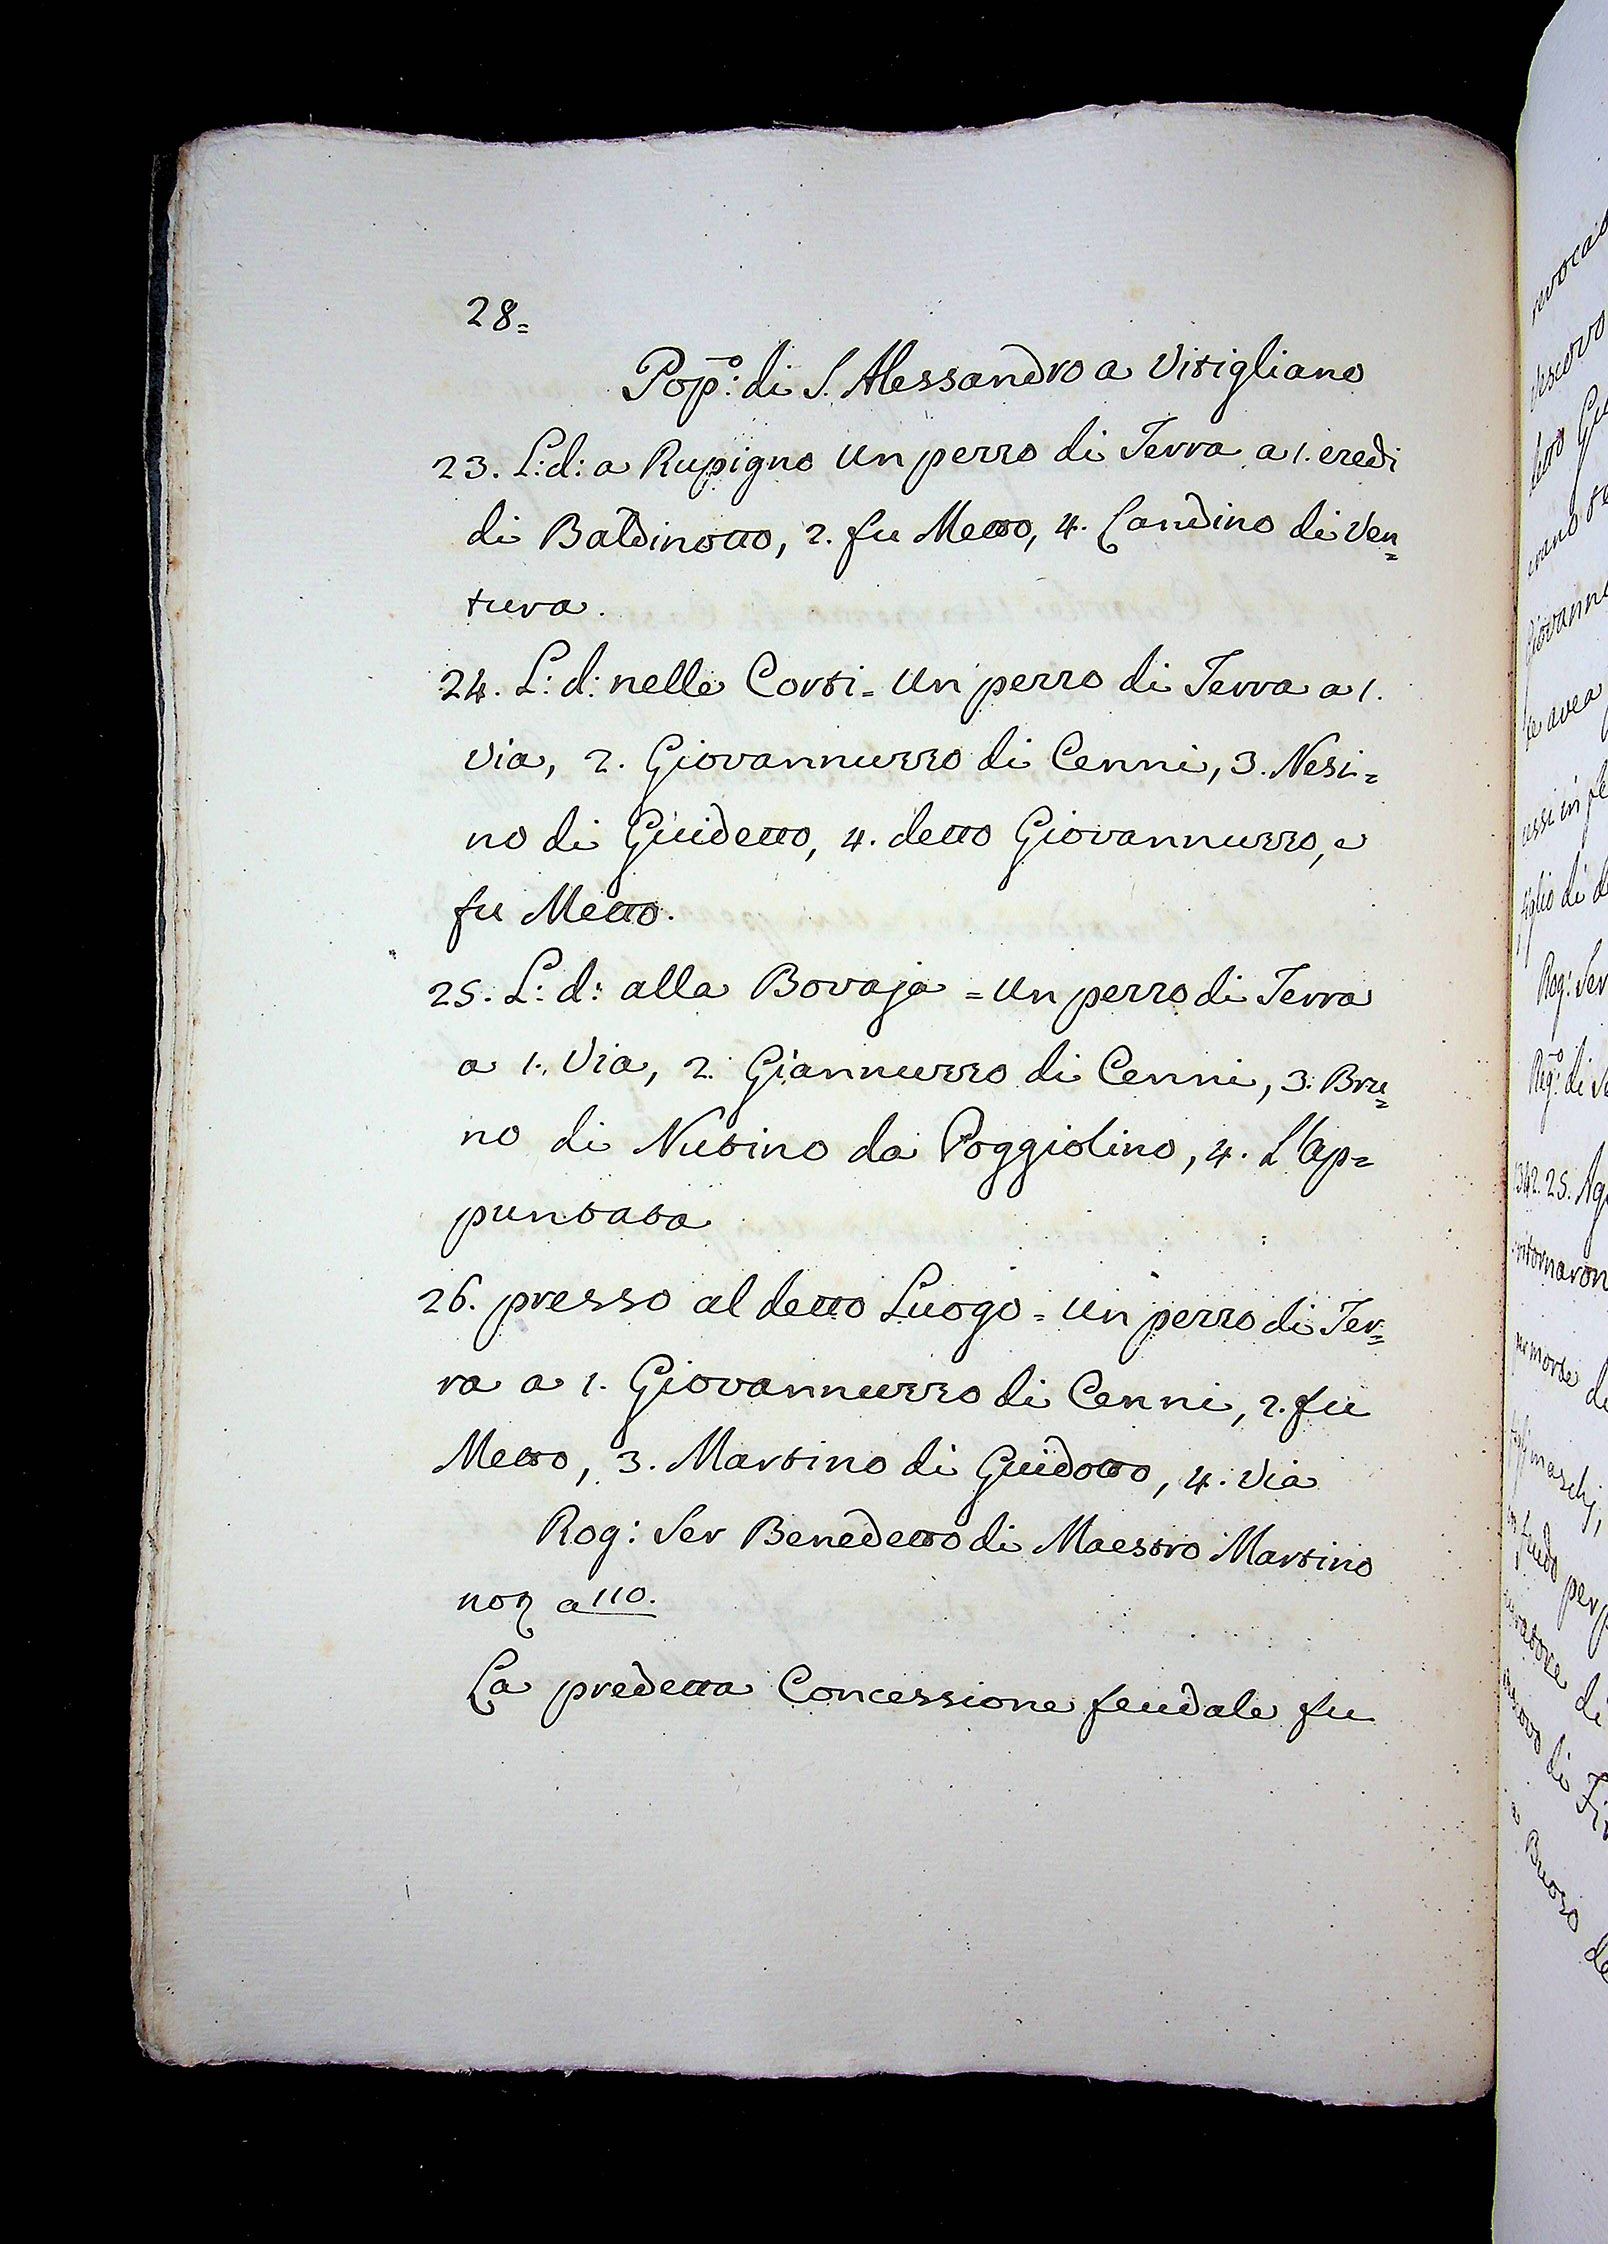 28=
Pop:º di S. Alessandro a Vitigliano
23. L: d: a Rupigno un pezzo di Terra a 1. eredi
di Baldinotto, 2. fu Metto, 4. Landino di Ven=
tura.
24. L: d: nelle Corti = un pezzo di Terra a 1.
via, 2. Giovannuzzo di Cenni, 3. Nesi=
no di Guidetto, 4. detto Giovannuzzo, e
fu Metto.
25. L: d: alla Bovaja = un pezzo di Terra
a 1. Via, 2. Giannuzzo di Cenni, 3. Bru=
no di Nutino da Poggiolino, 4. L'ap=
puntata
26. presso al detto Luogo = un pezzo di Ter=
ra a 1. Giovannuzzo di Cenni, 2. fu
Metto, 3. Martino di Guidotto, 4. via
Rog: Ser Benedetto di Maestro Martino
a 110.
La predetta Concessione feudale fu
Giovanni
te avea
figlio di
Rog: Ser
1342. 25.
ritornaron